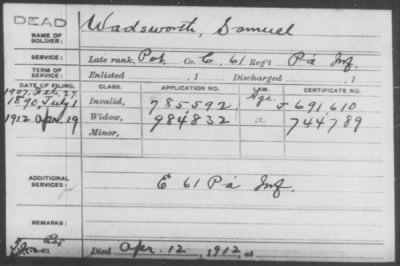 DEAD
NAME OF SOLDIER: Wadsworth, Samuel
SERVICE: Late rank, Pvt. Co. C, 61 Reg't Pa Inf.
TERM OF SERVICE: Enlisted , 1 Discharged , 1
DATE OF FILING. CLASS. APPLICATION NO. LAW. CERTIFICATE NO.
1907, Feb. 27
1890, July 1 Invalid, 785592 Age. 691610
1912 Apr. 19 Widow, 984832 a 744789
Minor,
ADDITIONAL SERVICES: E 61 Pa Inf.
REMARKS:
Died Apr. 12, 1912, at